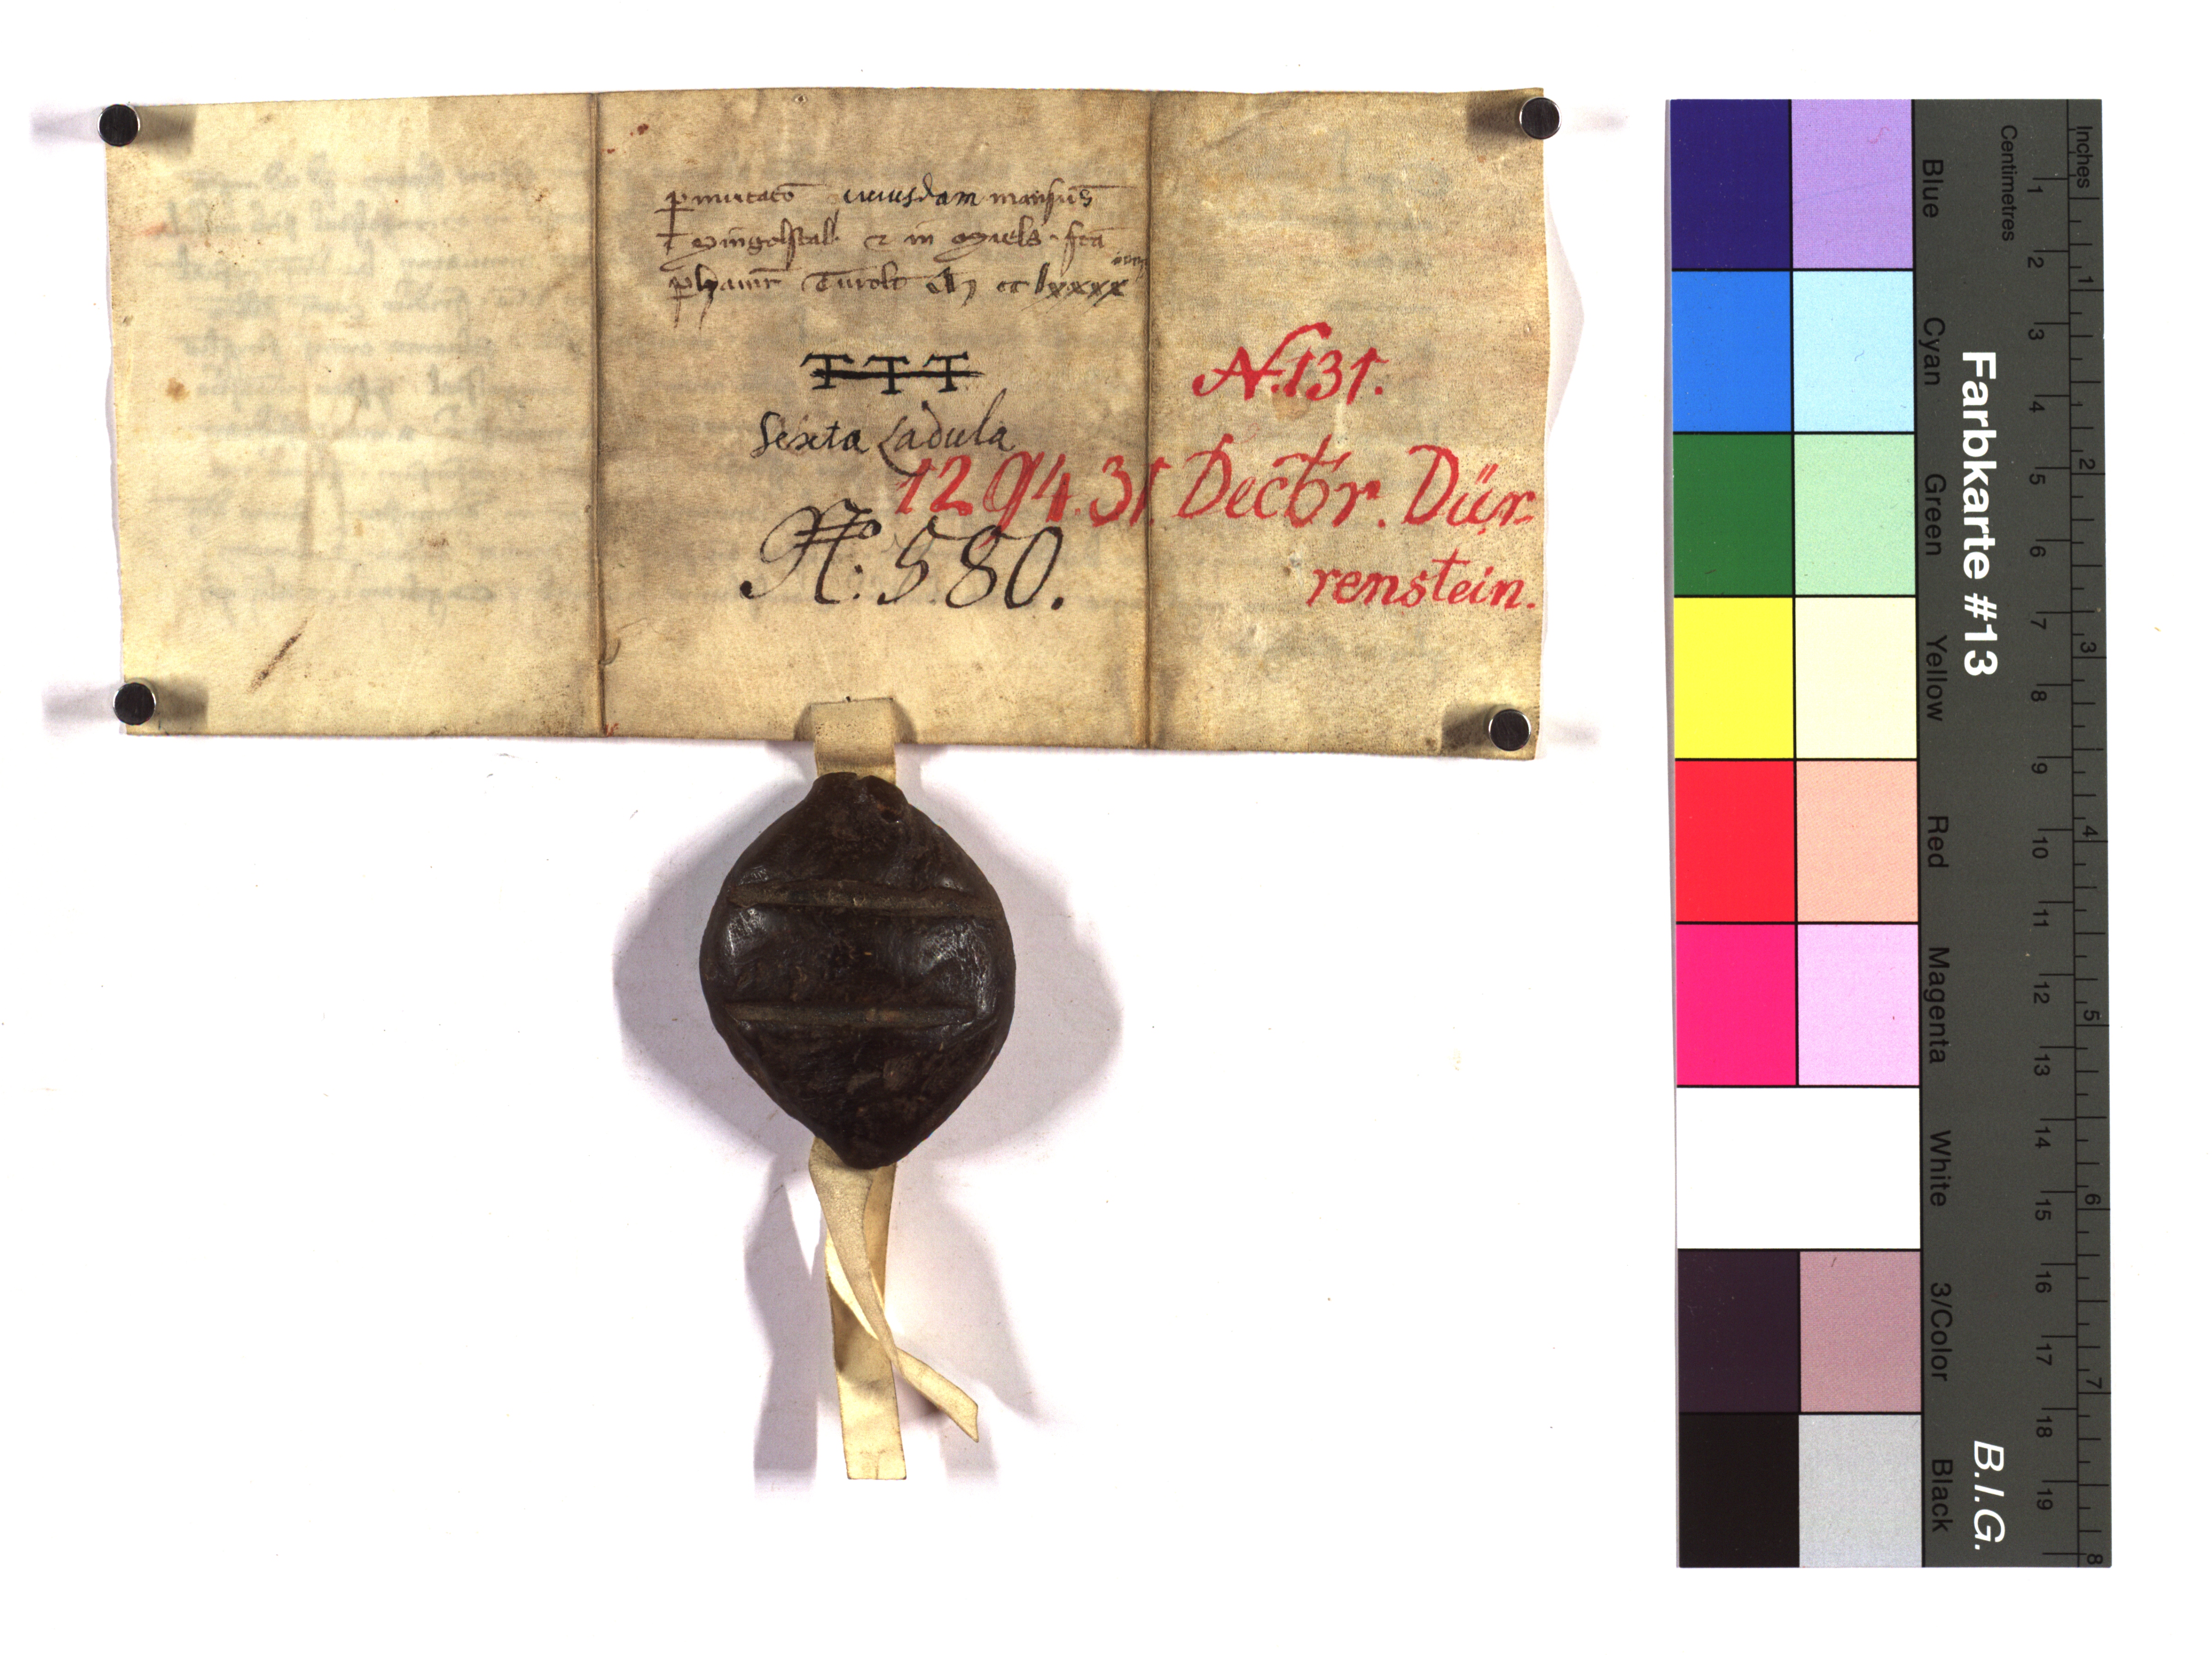 p̲mutac̄o cuiusdam mansus̄
Dingolstal ⁊ in Miels fc̄a
p̲ hainr̄ Turolt M cc lxxxx
TTT
Sexta Ladula
N. 131.
1294. 31 Decbr. Dür-
renstein.
N.º: 580.
Farbkarte #13
B.I.G.
Blue
Cyan
Green
Yellow
Red
Magenta
White
3/Color
Black
Centimetres
1
2
3
4
5
6
7
8
9
10
11
12
13
14
15
16
17
18
19
Inches
1
2
3
4
5
6
7
8